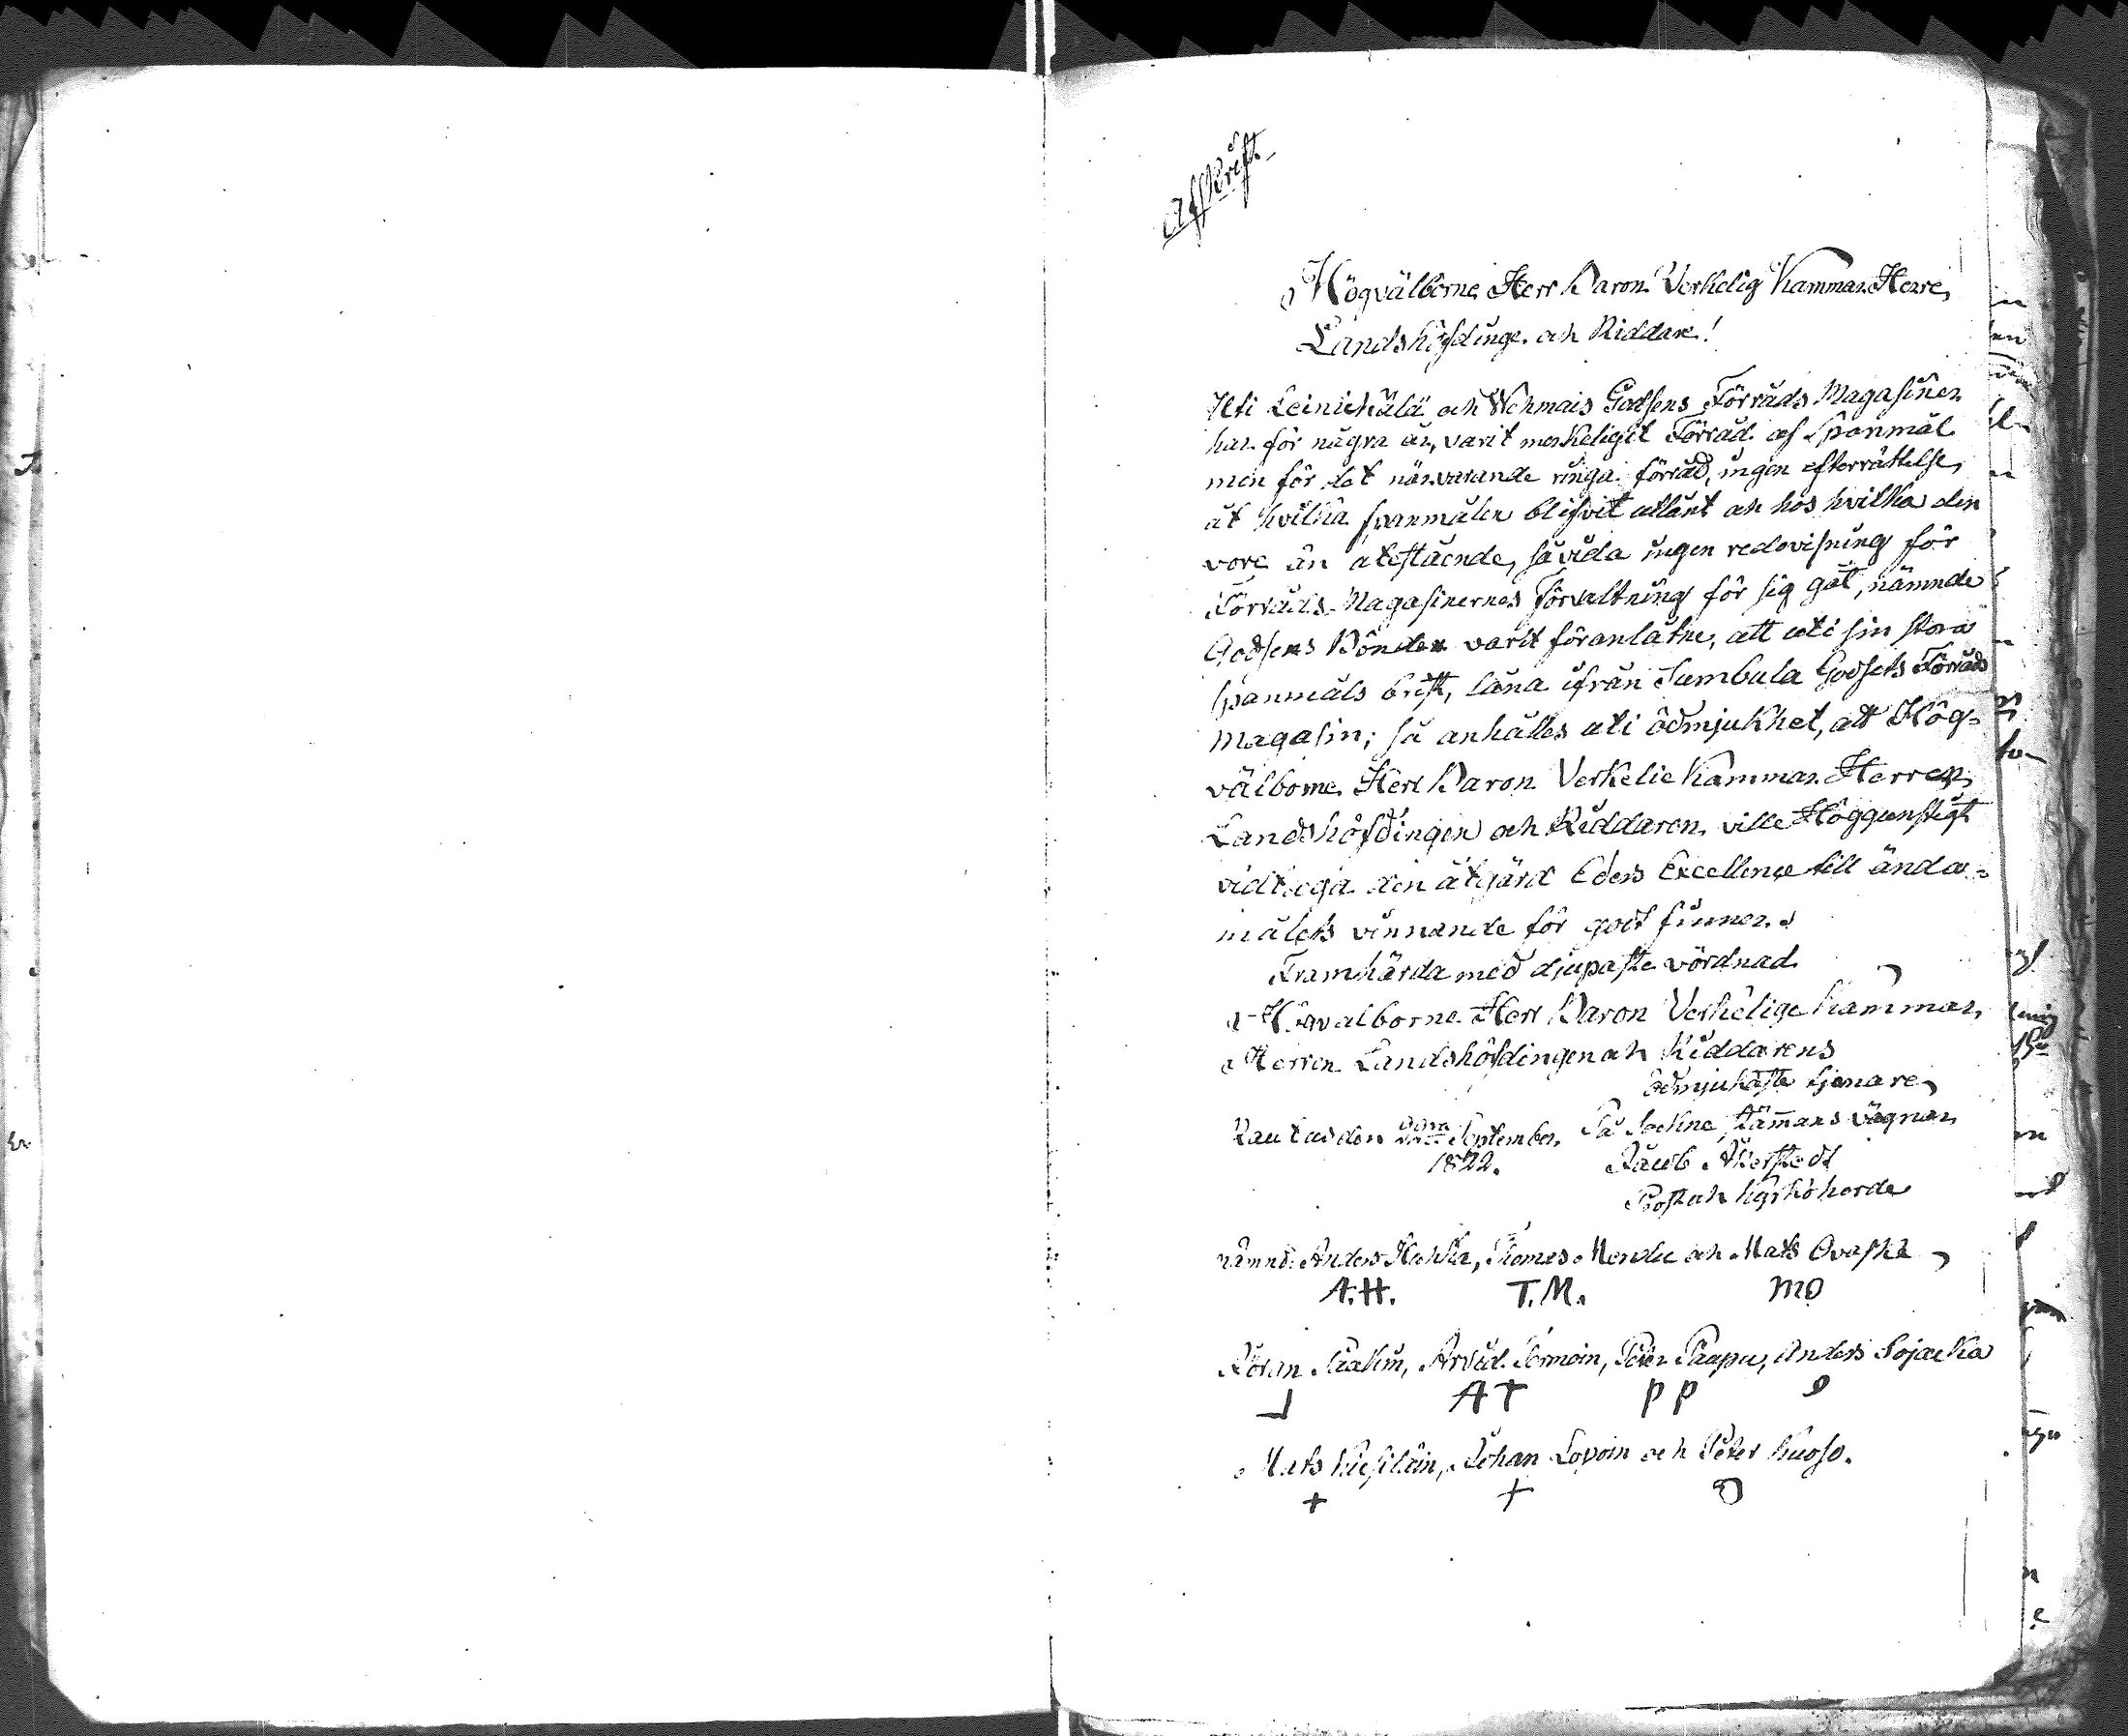 Afskrift
Högvälborne Herr Baron Verkelig Kammar Herre,
Landshöfdinge och Riddare!
Uti Leinikülä och Wehmais Godsens Förråds Magasiner
har för några år, varit merkeligit Förråd af Spanmål
men för det närvarande ringa förråd, ingen efterrättelse,
åt hvilka spanmålen blifvit utlånt och hos hvilka den
vore än utestående, såvida ingen redovisning för
Förråds Magasinernes Förvaltning för sig gåt, nämnde
Godsens Bönder varit föranlåtne, att uti sin stora
spanmåls brist, låna ifrån Sumbula Godsets Förråds
Magasin; så anhålles uti ödmjukhet, att Hög-
välborne Herr Baron Verkelie Kammar Herren,
Landshöfdingen och Riddaren, ville Höggunstigt
vidtaga den åtgärd Eders Excellence till ända-
målets vinnande för godt finner.
Framhärda med djupaste vördnad
Högvalborne Herr Baron Verkelige Kammar
Herren Landshöfdingen och Riddarens
ödmjukaste tjenare,
Rautus den September, På Sockne stämans vägnar,
1822. Jacob Åkerstedt
Prost och Kyrkoherde
nämnd: Anders Hahka, Thomas och Mats Ovaska
A.H. T.M. MO
Arvid Termoin, Peter Paapu, Anders Sojacka
A T P P
Mats Johan Lopoin och Peter Kuoso.
+ +